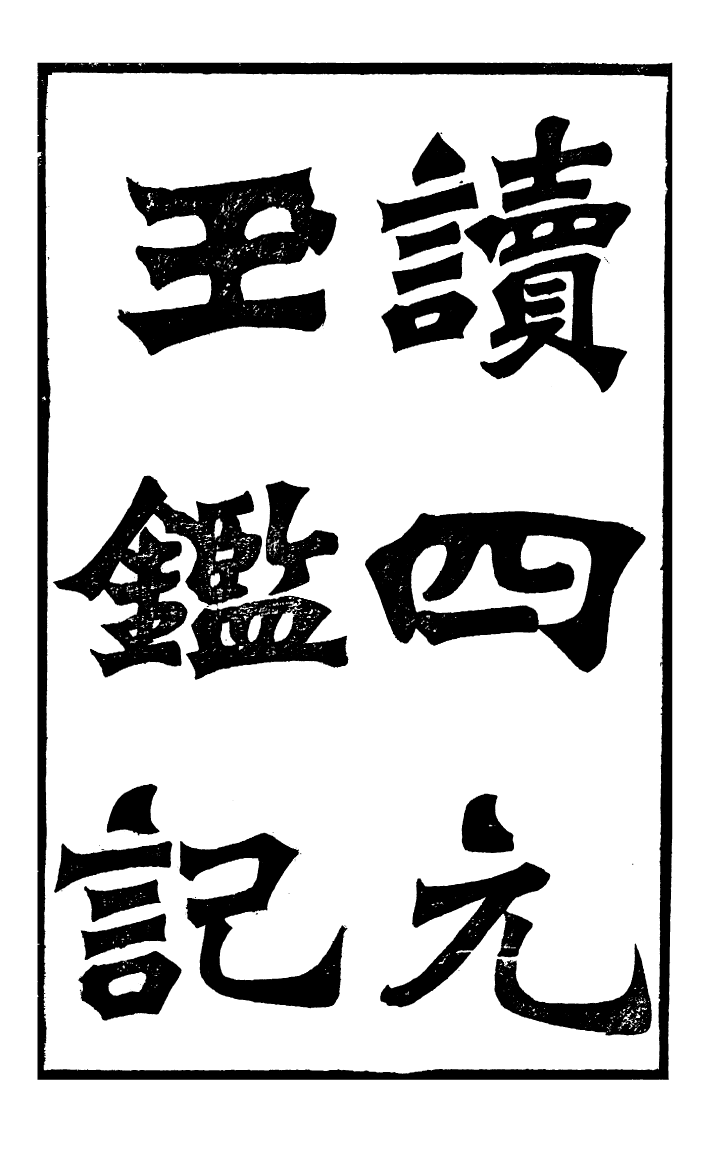 讀四元
玉鑑記